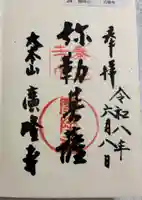 奉拝
令和八年
六月八日
弥勒菩薩
大本山
廣隆寺